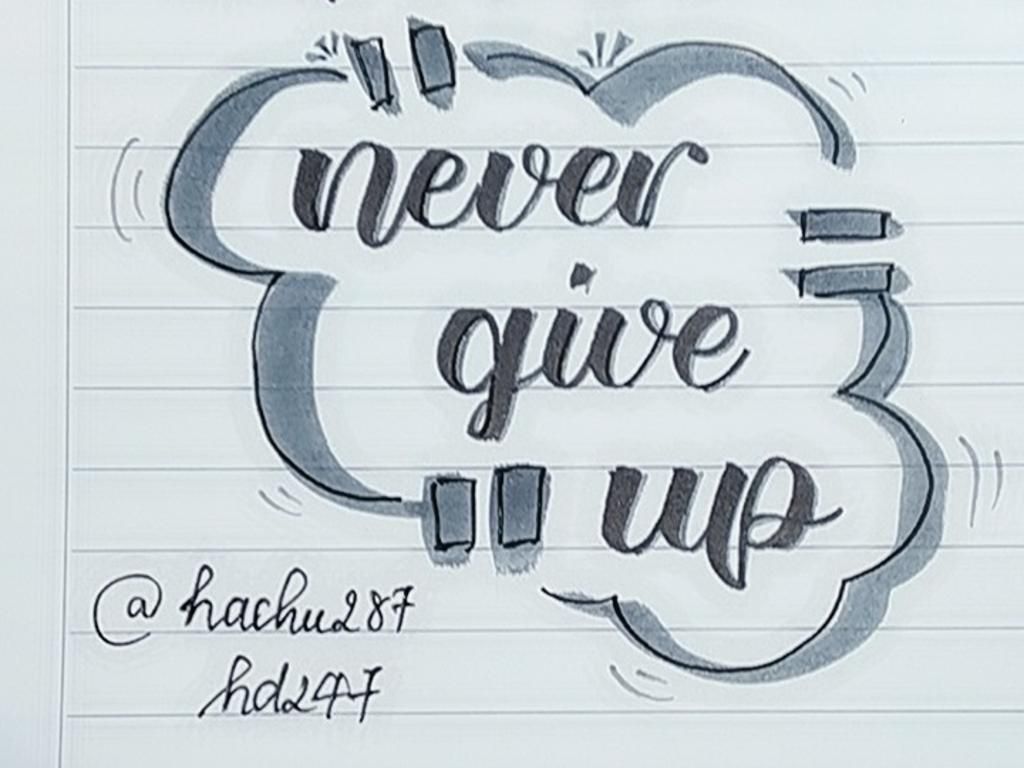 never
give
up
@hachu287
hd247